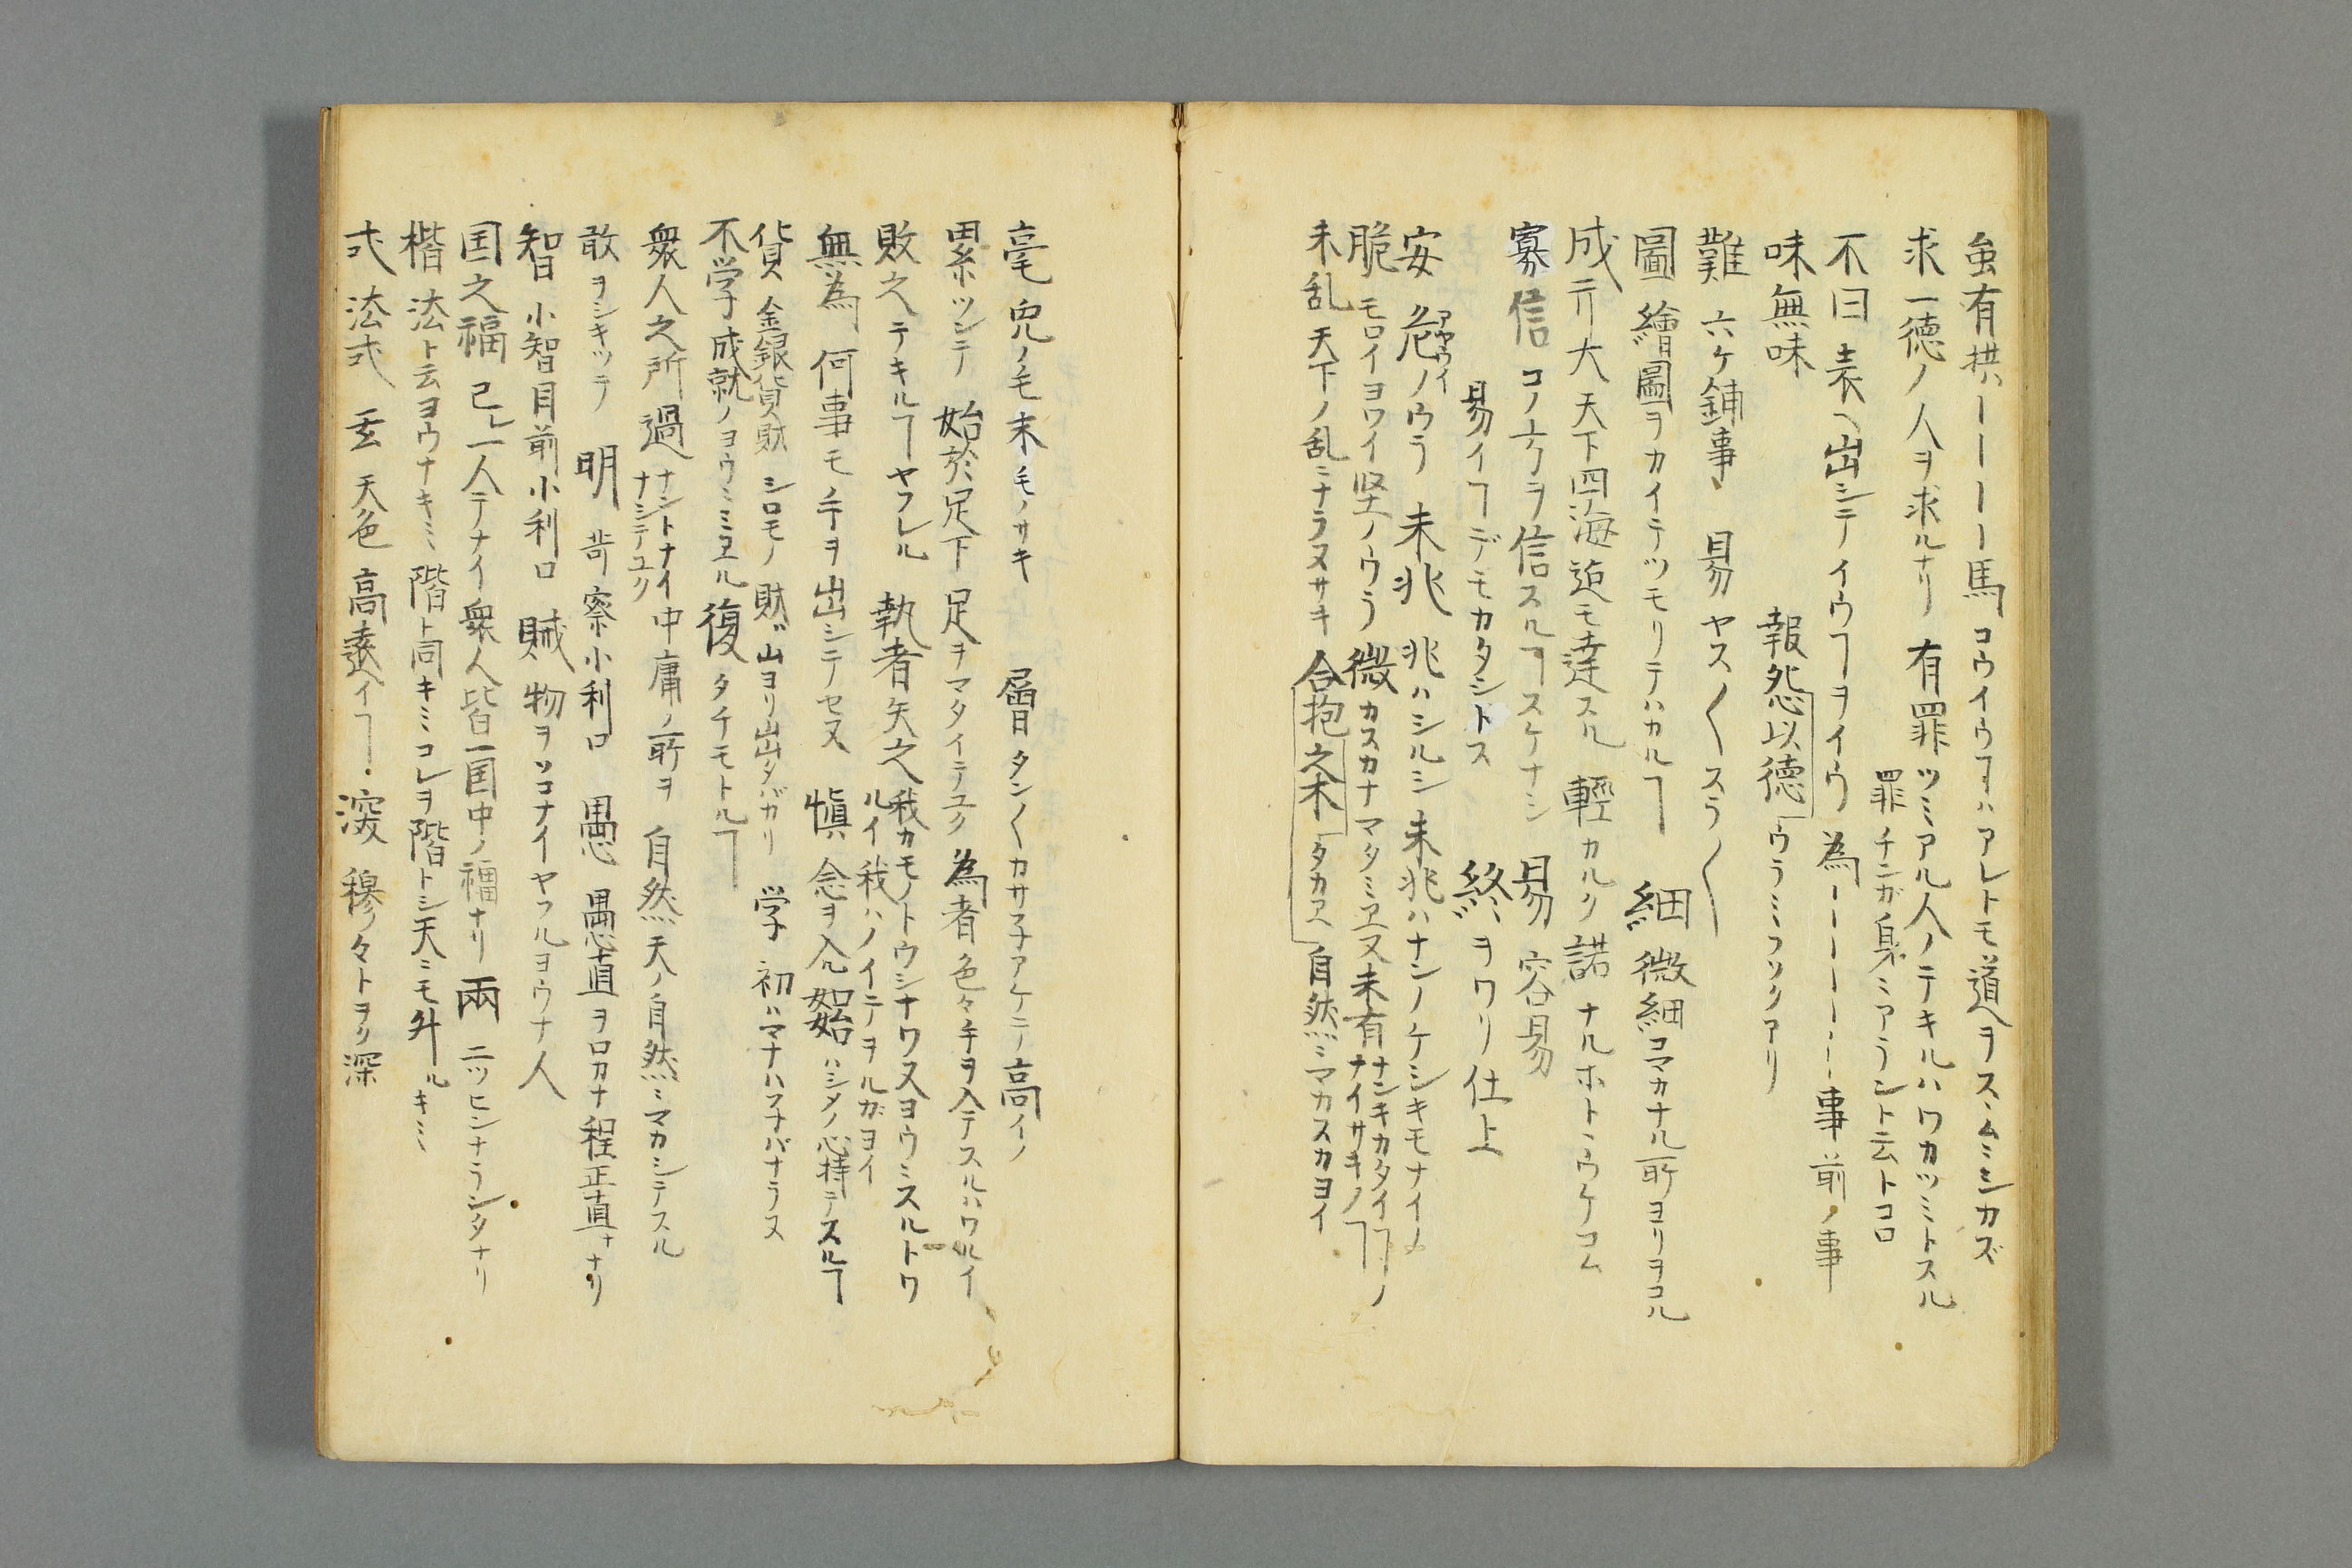 虽有拱ハーーーー馬 コウイウヿハアレトモ道ヲスヽムミシカズ
求 一徳ノ人ヲ求ルナリ 有罪 ツミアル人ノテキルハワカツミトスル
罪 チンガ身ミアラント云トコロ
不曰 表ヘ出シテイウヿヲイウ 為ーーーーーー事 前ノ事
味無味 報怨以徳 ウラミフソクアリ
難 六ケ鋪事 易 ヤス〱スラ〱
圖 繪圖ヲカイテツモリテハカルヿ 細 微細コマカナル所ヨリヲコル
成亓大 天下四海迠モ達スル 輕 カルク 諾 ナルホトヽウケコム
寡信 コノ方ヲ信スルヿスケナシ 易 容易
易イヿデモカタシトス 終 ヲワリ仕上
安 危アヤウイノウラ 未兆 兆ハシルシ未兆ハナンノケシキモナイノ
脆 モロイヨワイ堅ノウラ 微 カスカナマタミヱヌ未有 ナンキカタイヿノ ナイサキノヿ
未乱 天下ノ乱ミナラヌサキ 合抱之木 タカアヘ 自然ミマカスカヨイ
毫 兎ノ毛 末 毛ノサキ 層 タン〱カサ子アケテ高イノ
累 ツンテ 始於足下 足ヲマタイテユク 為者 色々手ヲ入テスルハワルイ
敗之 テキルヿヤフレル 執者矢之 我カモノトウシナワヌヨウミスルトワ
ルイ我ハノイテヲルガヨイ
無為 何事モノ手ヲ出シテセヌ 愼 念ヲ入 如始 ハシメノ心持テスルヿ
貨 金銀貨財 シロモノ 財ハ山ヨリ出タバカリ 学 初ハマナハ子バナラヌ
不学 成就ノヨウミミヱル 復 タチモトルヿ
衆人之所過 ナントナイ ナシテユク 中庸ノ所ヲ 自然 天ノ自然ミマカシテスル
敢 ヲシキツテ 明 苛察小利口 愚 愚直ヲロカナ程正直ナナリ
智 小智目前小利口 賊 物ヲソコナイヤフルヨウナ人
国之福 己レ一人テナイ衆人皆一国中ノ福ナリ 兩 二ツヒンナランタナリ
楷 法ト云ヨウナキミ 階ト同キミコレヲ階トシ天ミモ升ルキミ
式 法式 玄 天色 高遠イヿ 深 穆々トヲク深